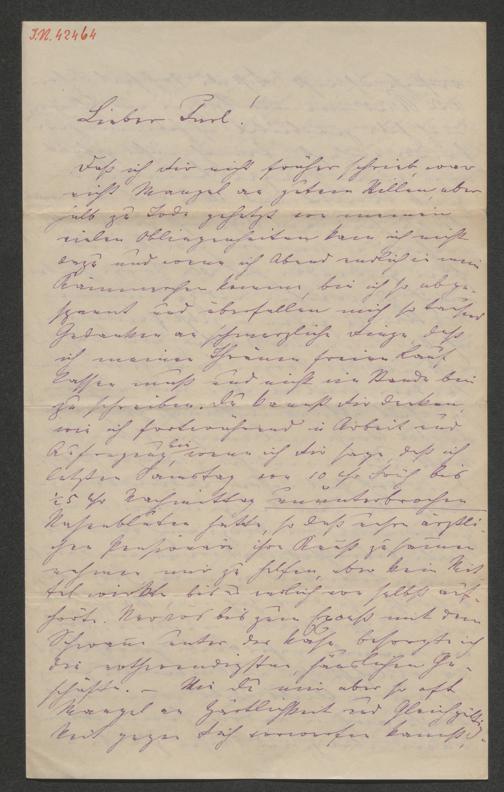 I.N. 42464
Lieber Karl!
Daß ich dir nicht früher schrieb, war
nicht Mangel an gutem Willen, aber
halb zu Tode gehetzt von meinen
vielen Obliegenheiten kam ich nicht
dazu und wenn ich Abend endlich in mein
Kämmerchen komme, bin ich so abge-
spannt und überfallen mich so tausend
Gedanken an schmerzliche Dinge, daß
ich meinen Thränen freien Lauf
lassen muß und nicht im Stande bin
zu schreiben. Du kannst dir denken,
wie ich fortwährend in Arbeit und
Aufregung bin, wenn ich dir sage, daß ich
letzten Samstag von 10 Uhr Früh bis
½5 Uhr Nachmittag ununterbrochen
Nasenbluten hatte, so daß unsere ärztli-
chen Pensionäre ihre Kunst zusammen
nehmen mir zu helfen, aber kein Mit-
tel wirkte bis es endlich von selbst auf-
hört. Nervös bis zum Exceß mit dem
Schwamm unter der Nase, besorgte ich
die nothwendigsten häuslichen Ge-
schäfte. – Wie du mir aber so oft
Mangel an Zärtlichkeit und Gleichgültig-
keit gegen dich vorwerfen kannst,